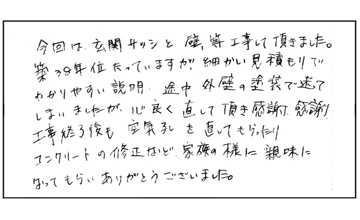 今回は、玄関サッシと壁等工事して頂きました。
築38年位たっていますが細かい見積もりで
わかりやすい説明、途中外壁の塗装で迷って
しまいましたが、心良く直して頂き感謝、感謝!
工事終了後も 空気孔を直してもらったり
コンクリートの修正など、家族の様に親味に
なってもらいありがとうございました。